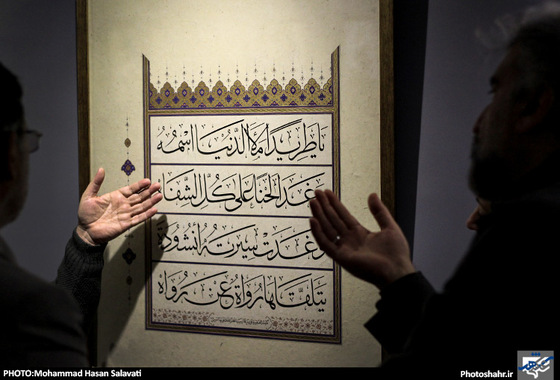 يَا طَرِيدًا مَلَأَ الدُّنْيَا اسْمُهُ
وَغَدَا لَحْنًا عَلَى كُلِّ الشِّفَاه
وَغَدَتْ سِيرَتُهُ أُنْشُودَةً
يَتَلَقَّاهَا رُوَاةٌ عَنْ رُوَاه
PHOTO:Mohammad Hasan Salavati
Photoshahr.ir